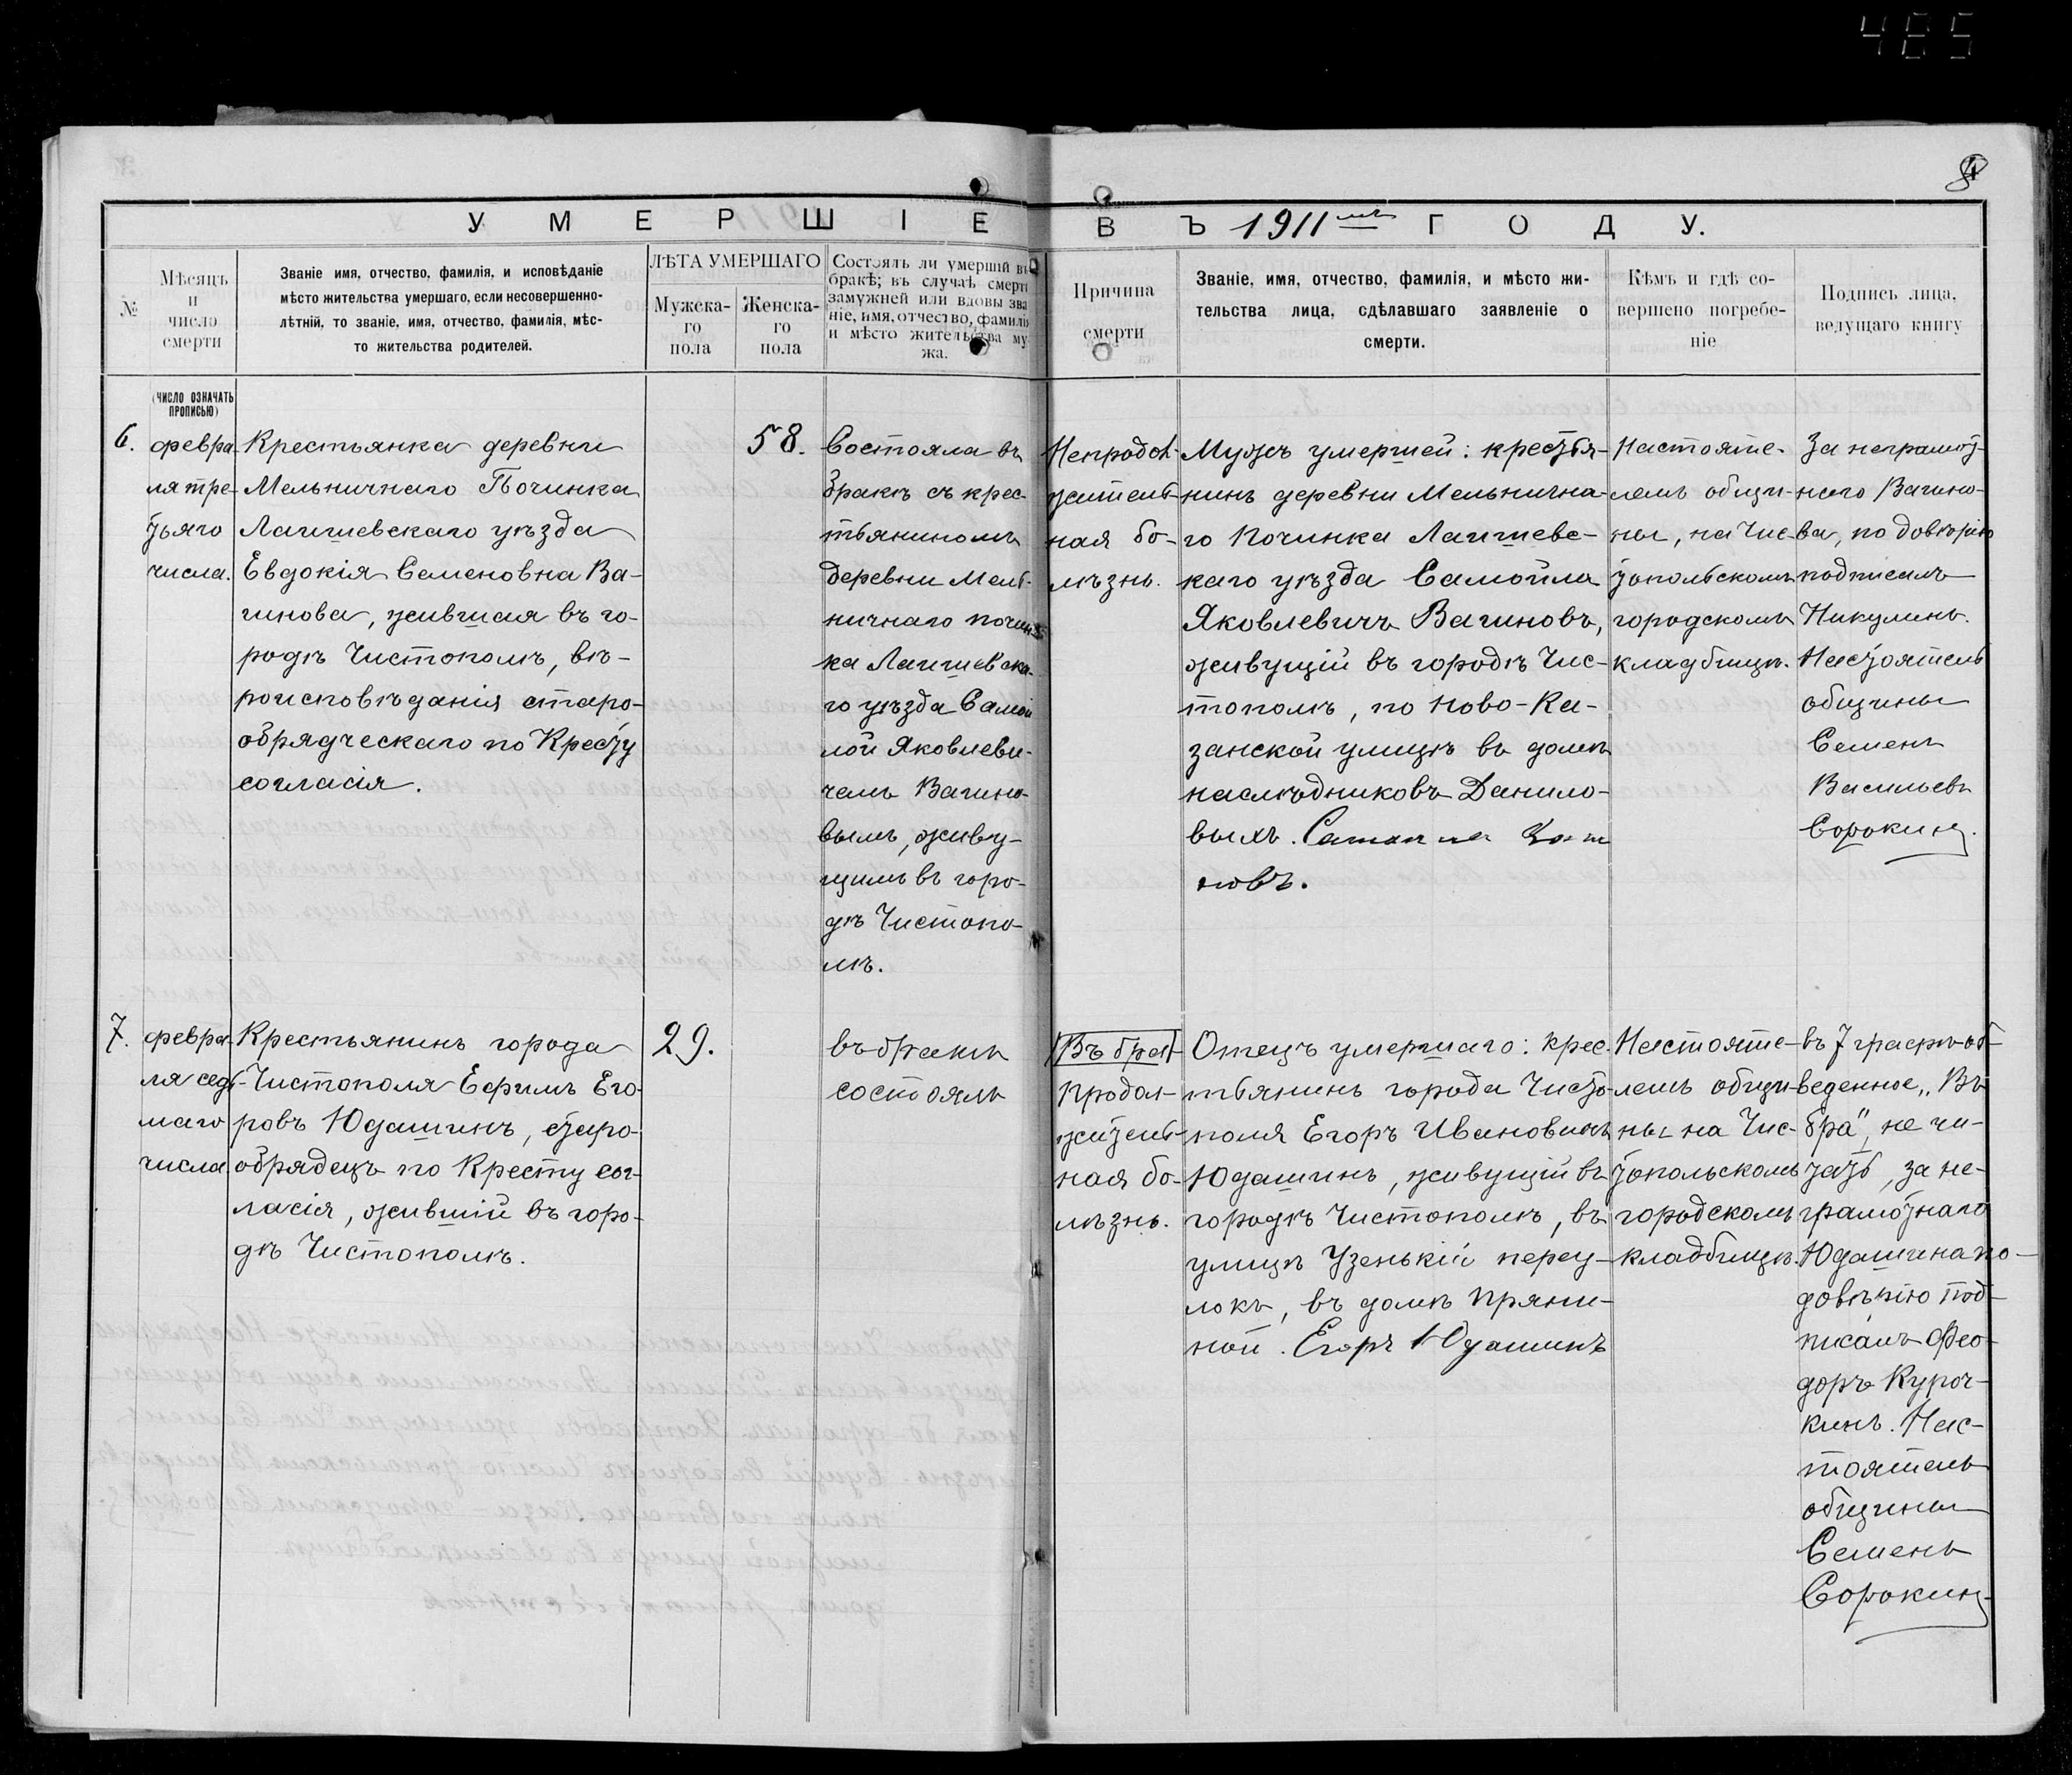 465
4
УМЕРШІЕ ВЪ 1911мъ ГОДУ.
№
Мѣсяцъ
и
число
смерти
Званіе имя, отчество, фамилія, и исповѣданіе
мѣсто жительства умершаго, если несовершенно-
лѣтній, то званіе, имя, отчество, фамилія, мѣс-
то жительства родителей.
ЛѢТА УМЕРШАГО
Мужска-
го
пола
Женска-
го
пола
Состоялъ ли умершій въ
бракѣ; въ случаѣ смерти
замужней или вдовы зва
ніе, имя, отчество, фамилія
и мѣсто жительства му
жа.
Причина
смерти
Званіе, имя, отчество, фамилія, и мѣсто жи-
тельства лица, сдѣлавшаго заявленіе о
смерти.
Кѣмъ и гдѣ со-
вершено погребе-
ніе
Подпись лица,
ведущаго книгу
(ЧИСЛО ОЗНАЧАТЬ
ПРОПИСЬЮ)
6.
февра-
ля тре-
тьяго
числа.
Крестьянка деревни
Мельничнаго Починка
Лаишевскаго уѣзда
Евдокія Семеновна Ва-
гинова, жившая въ го-
родѣ Чистополѣ, вѣ-
роисповѣданія старо-
обрядческаго по Кресту
согласія.
58.
Состояла въ
бракѣ съ крес-
тьяниномъ
деревни Мель-
ничнаго почин-
ка Лаишевска-
го уѣзда Самой
лой Яковлеви-
чемъ Вагино-
вымъ, живу-
щимъ въ горо-
дѣ Чистопо-
лѣ.
Непродол-
житель-
ная бо-
лѣзнь.
Мужъ умершей: крестья-
нинъ деревни Мельнична-
го Починка Лаишевс-
каго уѣзда Самойла
Яковлевичъ Вагиновъ,
живущій въ городѣ Чис-
тополѣ, по Ново-Ка-
занской улицѣ въ домѣ
наслѣдниковъ Данило-
выхъ.
новъ.
Настояте-
лемъ общи-
ны, на Чис-
топольскомъ
городскомъ
кладбищѣ.
За неграмот-
наго Вагино-
ва, по довѣрію
подписалъ
Никулинъ.
Настоятель
общины
Семенъ
Васильевъ
Сорокинъ.
7.
февра-
ля седь-
маго
числа
Крестьянинъ города
Чистополя Ефимъ Его-
ровъ Юдашинъ, старо-
обрядецъ по Кресту сог-
ласія, жившій въ горо-
дѣ Чистополѣ.
29.
въ бракѣ
состоялъ
Въ бра
продол-
житель-
ная бо-
лѣзнь.
Отецъ умершаго: крес-
тьянинъ города Чисто-
поля Егоръ Ивановичъ
Юдашинъ, живущій въ
городѣ Чистополѣ, въ
улицѣ Узенькій переу-
локъ, въ домѣ Пряни-
ной. Егоръ Юдашинъ
Настояте-
лемъ общи-
ны на Чис-
топольскомъ
городскомъ
кладбищѣ.
въ 7 графѣ об-
веденное „Въ
бра“, не чи-
тать, за не-
грамотнаго
Юдашина по-
довѣрію под-
писалъ Фео-
доръ Куроч-
кинъ. Нас-
тоятель
общины
Семенъ
Сорокинъ